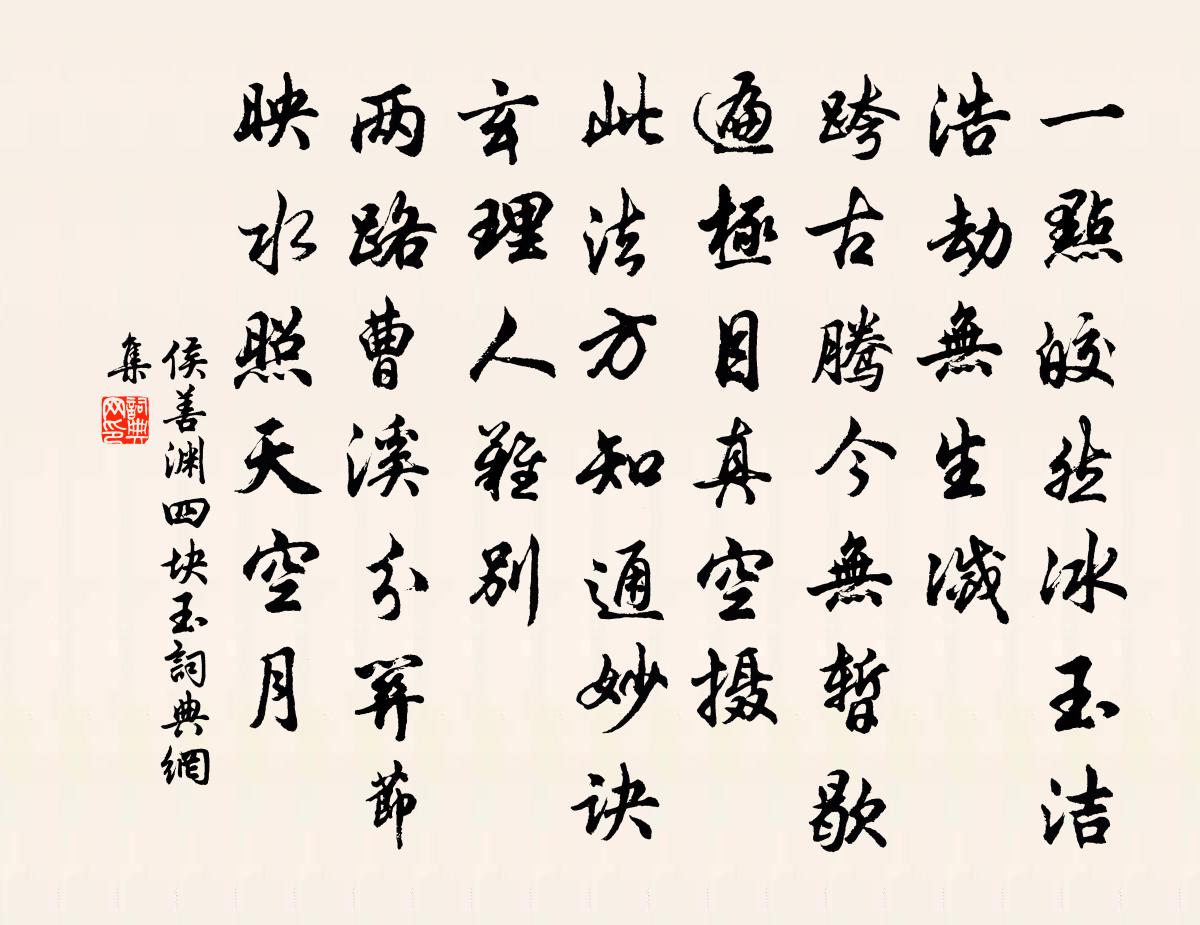 一點皎然冰玉洁
浩劫無生滅
跨古腾今無暫歇
遍極目真空摄
此法方知通妙诀
玄理人難別
两路曹溪分關節
映水照天空月
侯善渊四块玉詞典網
集
詞典
网印